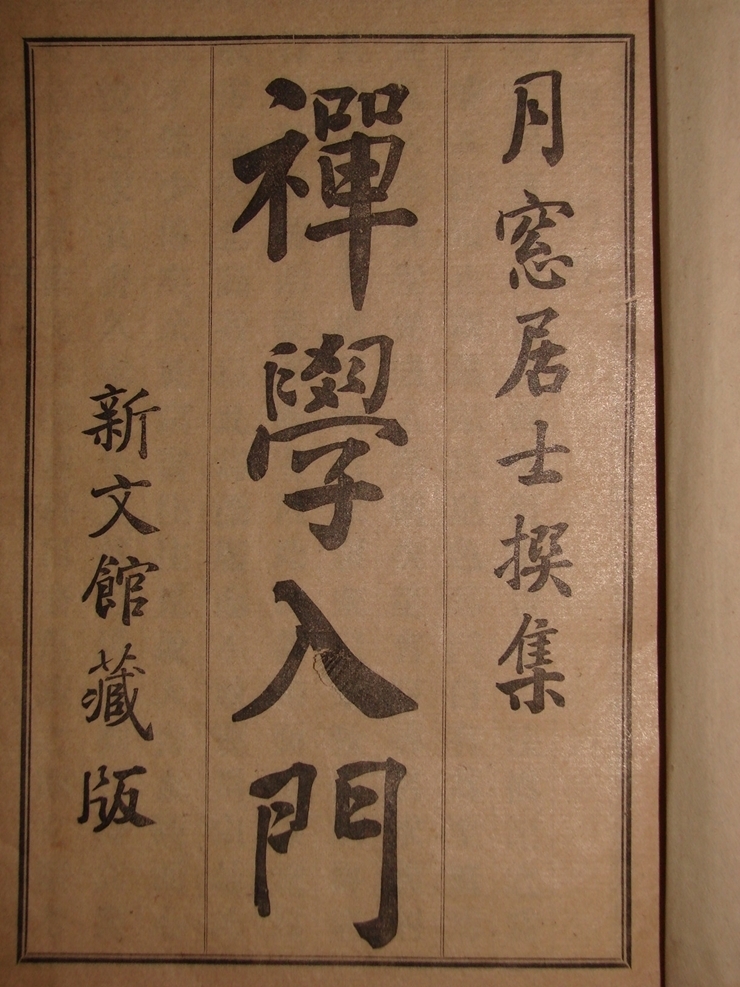 月窓居士撰集
禪學入門
新文館藏版